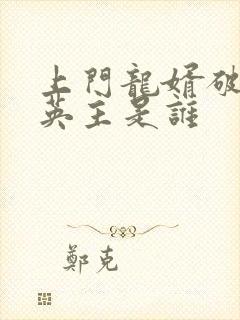 上門龍婿破
英主是誰
鄭克